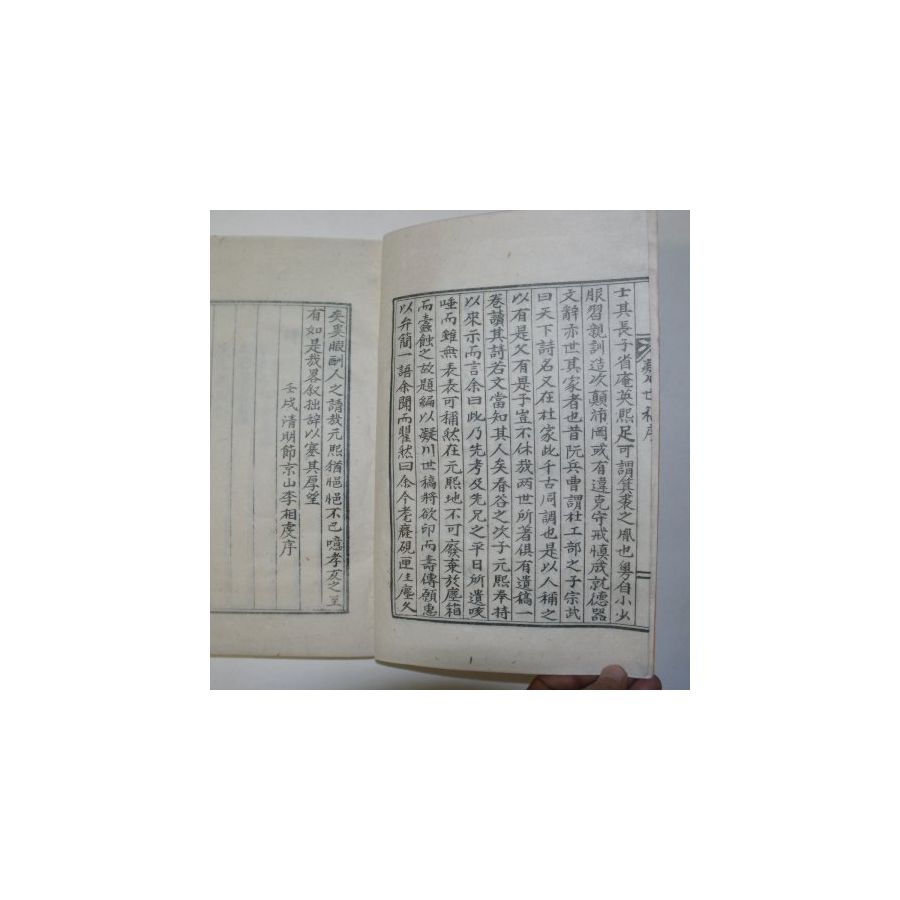 凝川世稿序
士其長子省庵英熙足可謂箕裘之胤也粤自小少
服習親訓造次顛沛罔或有違克守戒愼成就德器
文辭亦世其家者也昔阮兵曹謂杜工部之子宗武
曰天下詩名又在杜家此千古同調也是以人稱之
以有是父有是子豈不休哉兩世所著俱有遺稿一
卷讀其詩若文當知其人矣春谷之次子元熙奉持
以來示而言余曰此乃先考及先兄之平日所遺咳
唾而雖無表表可稱然在元熙地不可廢棄於塵箱
而蠹蝕之故題編以凝川世稿將欲印而壽傳願惠
以弁簡一語余聞而瞿然曰余今耄癃硯匣生塵久
矣奚暇酬人之請哉元熙猶悒悒不已噫孝友之至
有如是哉畧叙拙辭以塞其厚望
壬戌淸明節京山李相虔序